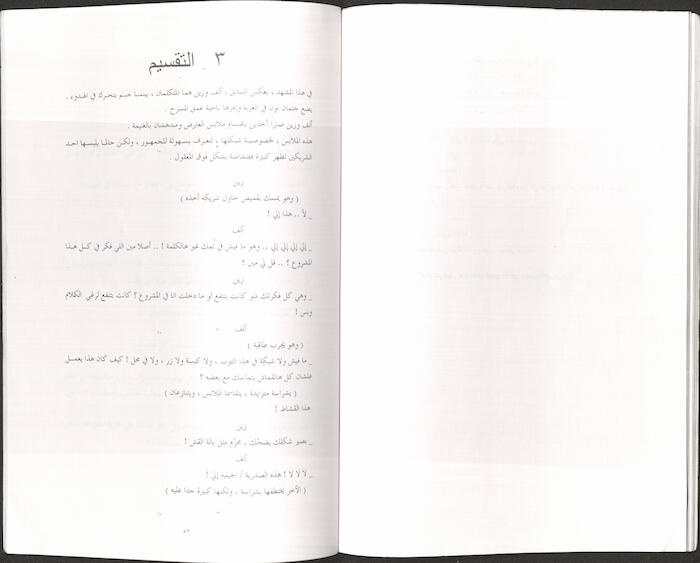 ٣ - التقسيم
في هذا المشهد ، بعكس السابق ، ألف وزين هما المتكلمان ، بينما جيم يتحرك في الهدوء .
يضع جثمان نون في العربة ويجرها ناحية عمق المسرح .
ألف وزين صارا آخذين باقتسام ملابس العارض ومندهشان بالغنيمة .
هذه الملابس ، لخصوصية شكلها ، تتعرف بسهولة للجمهور ، ولكن حالما يلبسها احد
الشريكين تظهر كبيرة فضفاضة بشكل فوق المعقول .
زين
( وهو يمسك بقميص حاول شريكه أخذه )
_ لأ .. هذا إلي !
ألف
_ إلي إلي إلي إلي .. وهو ما فيش في تمك غير هالكلمة ! .. أصلا مين اللي فكر في كل هذا
المشروع ؟ .. قل لي مين ؟
زين
_ وهي كل فكرتك شو كانت بتنفع لو ما دخلت انا في المشروع ؟ كانت بتنفع لرغي الكلام
وبس !
ألف
( وهو يجرب طاقية )
_ ما فيش ولا شبكة في هذا التوب ، ولا كبسة ولا زر ، ولا في محل ! كيف كان هذا يعمل
علشان كل هالقماش يتماسك مع بعضه ؟
( بشراسة متزايدة ، يتقاسما الملابس ، ويتنازعان )
هذا القشاط !
زين
_ بصير شكلك بضحّك ، محزّم مثل بالة القش !
ألف
_ لا لا لا ! هذه الصدرية / اجيليه إلي !
( الآخر يختطفها بشراسة ، ولكنها كبيرة جدا عليه )
٥٩